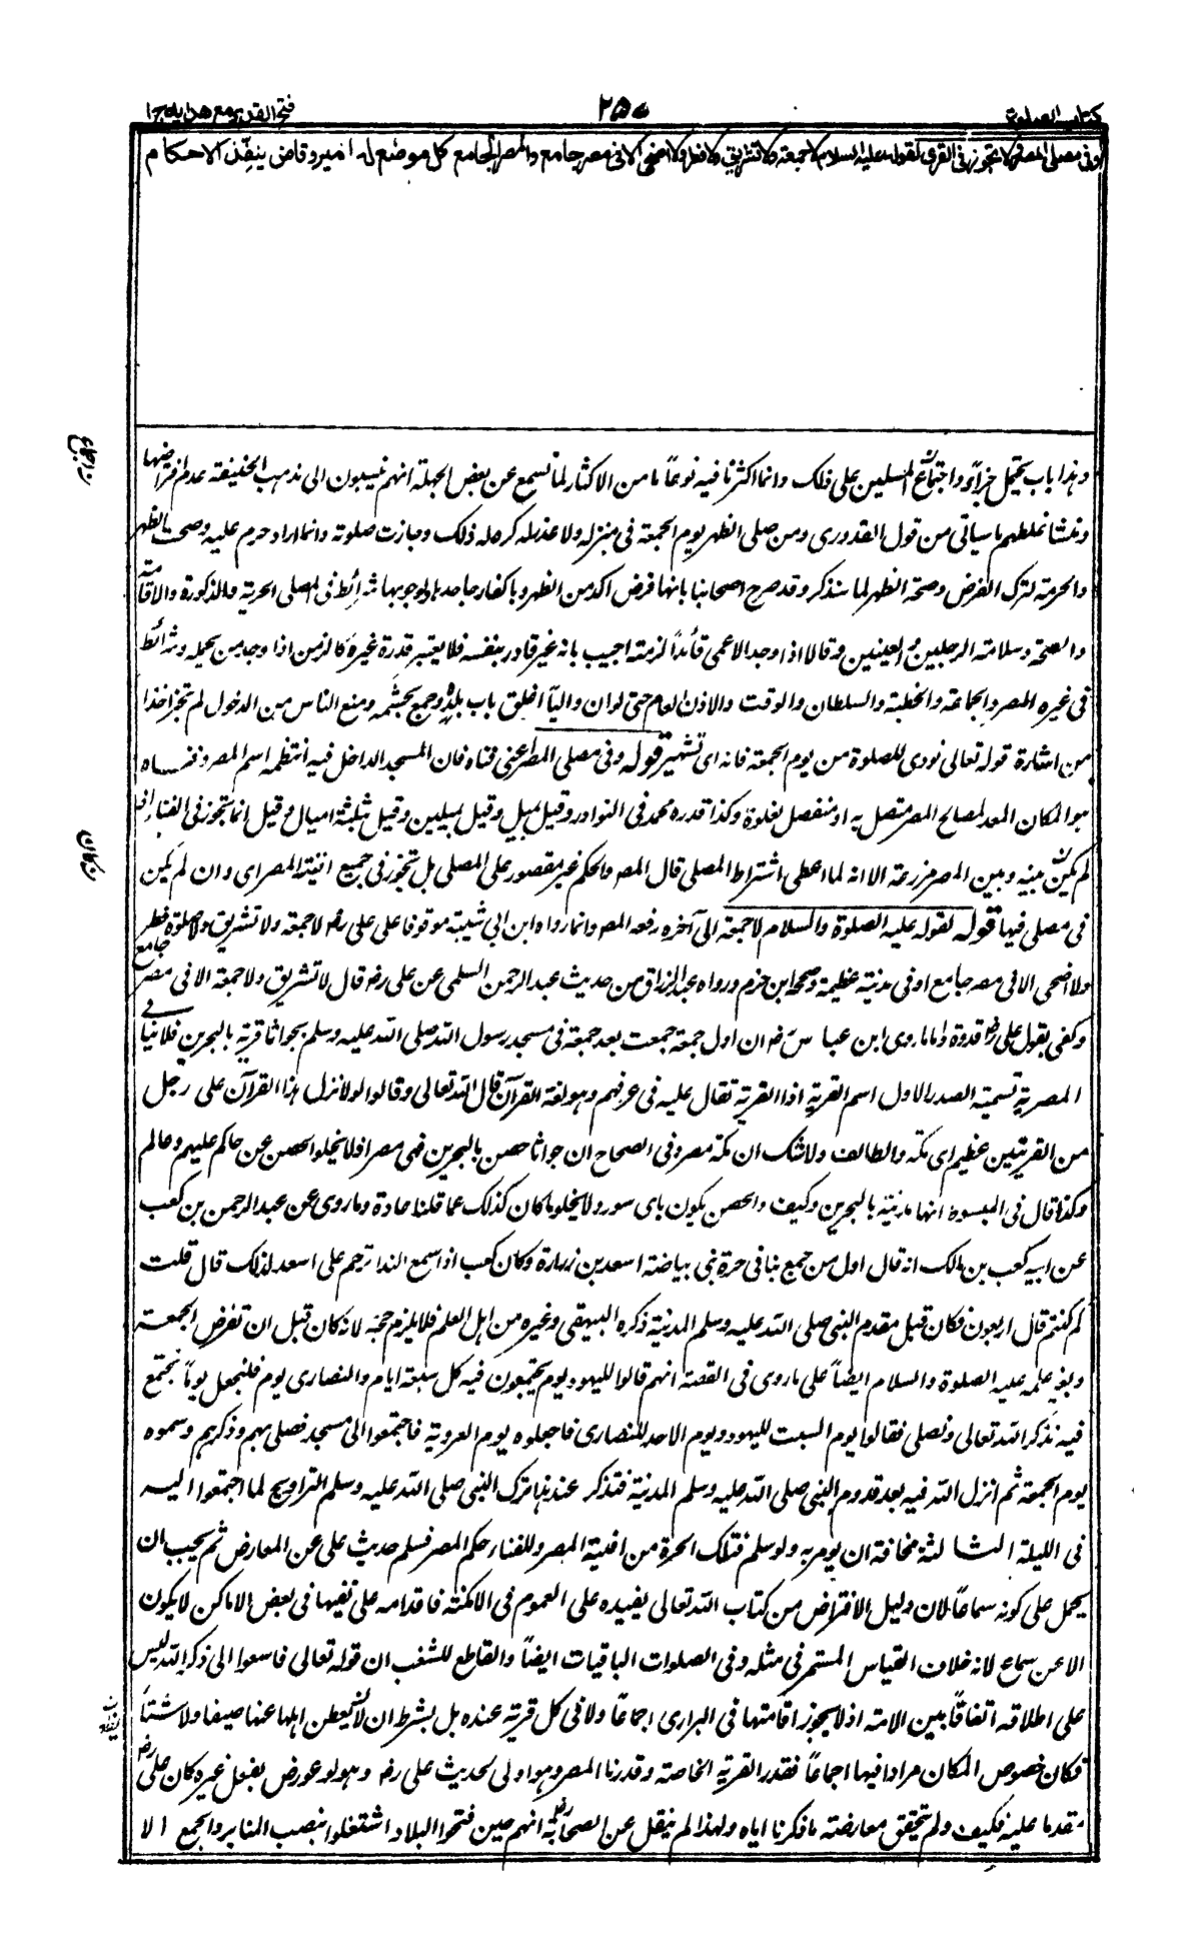 كتاب الصلوة
٢٥٠
فتح القدير مع هدايه ج ١
او فى مصلى المصر ولا تجوز فى القرى لقوله عليه السلام لا جمعة ولا تشريق ولا فطر ولا اضحى الا فى مصر جامع والمصر الجامع كل موضع له امير وقاض ينفذ الاحكام
وهذا باب يحتمل جزأ واجتماع المسلمين على ذلك وانما اكثرنا فيه نوعاً ما من الاكثار لما نسمع عن بعض الجهلة انهم ينسبون الى مذهب الحنيفة عدم افتراضها
ومنشا غلطهم ما سياتى من قول القدورى ومن صلى الظهر يوم الجمعة فى منزله ولا عذر له كره له ذلك وجازت صلوته وانما اراد حرم عليه وصحت الظهر
والحرمة لترك الفرض وصحة الظهر لما سنذكر وقد صرح اصحابنا بانها فرض اكد من الظهر وباكفار جاحدها ولوجوبها شرائط فى المصلى الحرية والذكورة والاقامة
والصحة وسلامة الرجلين والعينين وقالا اذا وجد الاعمى قائداً لزمته اجيب بانه غير قادر بنفسه فلا يعتبر قدرة غيره كالزمن اذا وجد من يحمله وشرائط
فى غيره المصر والجماعة والخطبة والسلطان والوقت والاذن العام حتى لو ان واليا اغلق باب بلده وجمع بحشمه ومنع الناس من الدخول لم تجز اخذا
من اشارة قوله تعالى نودى للصلوة من يوم الجمعة فانه اى تشهير قوله وفى مصلى المصر اعنى فناه فان المسجد الداخل فيه انتظمه اسم المصر وفناه
هو المكان المعد لمصالح المصر متصل به او منفصل بغلوة وكذا قدره محمد فى النوادر وقيل بميل وقيل بميلين وقيل بثلثة اميال وقيل انما تجوز فى الفناء اذا
لم يكن بينه وبين المصر مزرعة الا انه لما اعطى اشتراط المصلى قال المصر والحكم غير مقصور على المصلى بل تجوز فى جميع افنية المصر اى وان لم يكن
فى مصلى فيها قوله لقوله عليه الصلوة والسلام لا جمعة الى آخره رفعه المصر وانما رواه ابن ابى شيبة موقوفا على على رضه لا جمعة ولا تشريق ولا صلوة فطر
ولا اضحى الا فى مصر جامع او فى مدينة عظيمة وصححه ابن حزم ورواه عبد الرزاق من حديث عبد الرحمن السلمى عن على رضه قال لا تشريق ولا جمعة الا فى مصر جامع
وكفى بقول على رضه قدوة واما ما روى ابن عباس رضه ان اول جمعة جمعت بعد جمعة فى مسجد رسول الله صلى الله عليه وسلم بجواثا قرية بالبحرين فلا ينافى
المصرية تسمية الصدر الاول اسم القرية اذ القرية تقال عليه فى عرفهم وهو لغة القرآن قال الله تعالى وقالوا لولا نزل هذا القرآن على رجل
من القريتين عظيم اى مكة والطائف ولا شك ان مكة مصر وفى الصحاح ان جواثا حصن بالبحرين فهى مصر اذ لا يخلو الحصن عن حاكم عليهم وعالم
وكذا قال فى المبسوط انها مدينة بالبحرين وكيف والحصن يكون باى سور ولا يخلو ما كان كذلك عما قلنا عادة وما روى عن عبد الرحمن بن كعب
عن ابيه كعب بن مالك انه قال اول من جمع بنا فى حرة بنى بياضة اسعد بن زرارة وكان كعب اذا سمع النداء ترحم على اسعد لذلك قال قلت
كم كنتم قال اربعون فكان قبل مقدم النبى صلى الله عليه وسلم المدينة ذكره البيهقى وغيره من اهل العلم فلا يلزم حجة لانه كان قبل ان تفرض الجمعة
وبغير علمه عليه الصلوة والسلام ايضاً على ما روى فى القصة انهم قالوا لليهود يوم يجتمعون فيه كل سبعة ايام والنصارى يوم فلنجعل يوماً نجتمع
فيه نذكر الله تعالى ونصلى فقالوا يوم السبت لليهود ويوم الاحد للنصارى فاجعلوه يوم العروبة فاجتمعوا الى مسجد فصلى بهم وذكرهم وسموه
يوم الجمعة ثم انزل الله فيه بعد قدوم النبى صلى الله عليه وسلم المدينة فتذكر عند هذا ترك النبى صلى الله عليه وسلم التراويح لما اجتمعوا اليه
فى الليلة الثالثة مخافة ان يومر به ولو سلم فتلك الحرة من افنية المصر وللفناء حكم المصر فسلم حديث على عن المعارض ثم يجب ان
يحمل على كونه سماعاً لان دليل الافتراض من كتاب الله تعالى يفيده على العموم فى الامكنة فاقدامه على نفيها فى بعض الاماكن لا يكون
الا عن سماع لانه خلاف القياس المستمر فى مثله وفى الصلوات الباقيات ايضاً والقاطع للشغب ان قوله تعالى فاسعوا الى ذكر الله ليس
على اطلاقه اتفاقاً بين الامة اذ لا يجوز اقامتها فى البرارى اجماعاً ولا فى كل قرية عنده بل بشرط ان لا يظعن اهلها عنها صيفا ولا شتاءً
فكان خصوص المكان مرادا فيها اجماعاً فقدر القرية الخاصة وقدرنا المصر وهو اولى لحديث على رضه وهو لو عورض بفعل غيره كان على رضه
مقدما عليه فكيف ولم يتحقق معارضة ما ذكرنا اياه ولهذا لم ينقل عن الصحابة رضه انهم حين فتحوا البلاد اشتغلوا بنصب المنابر والجمع الا